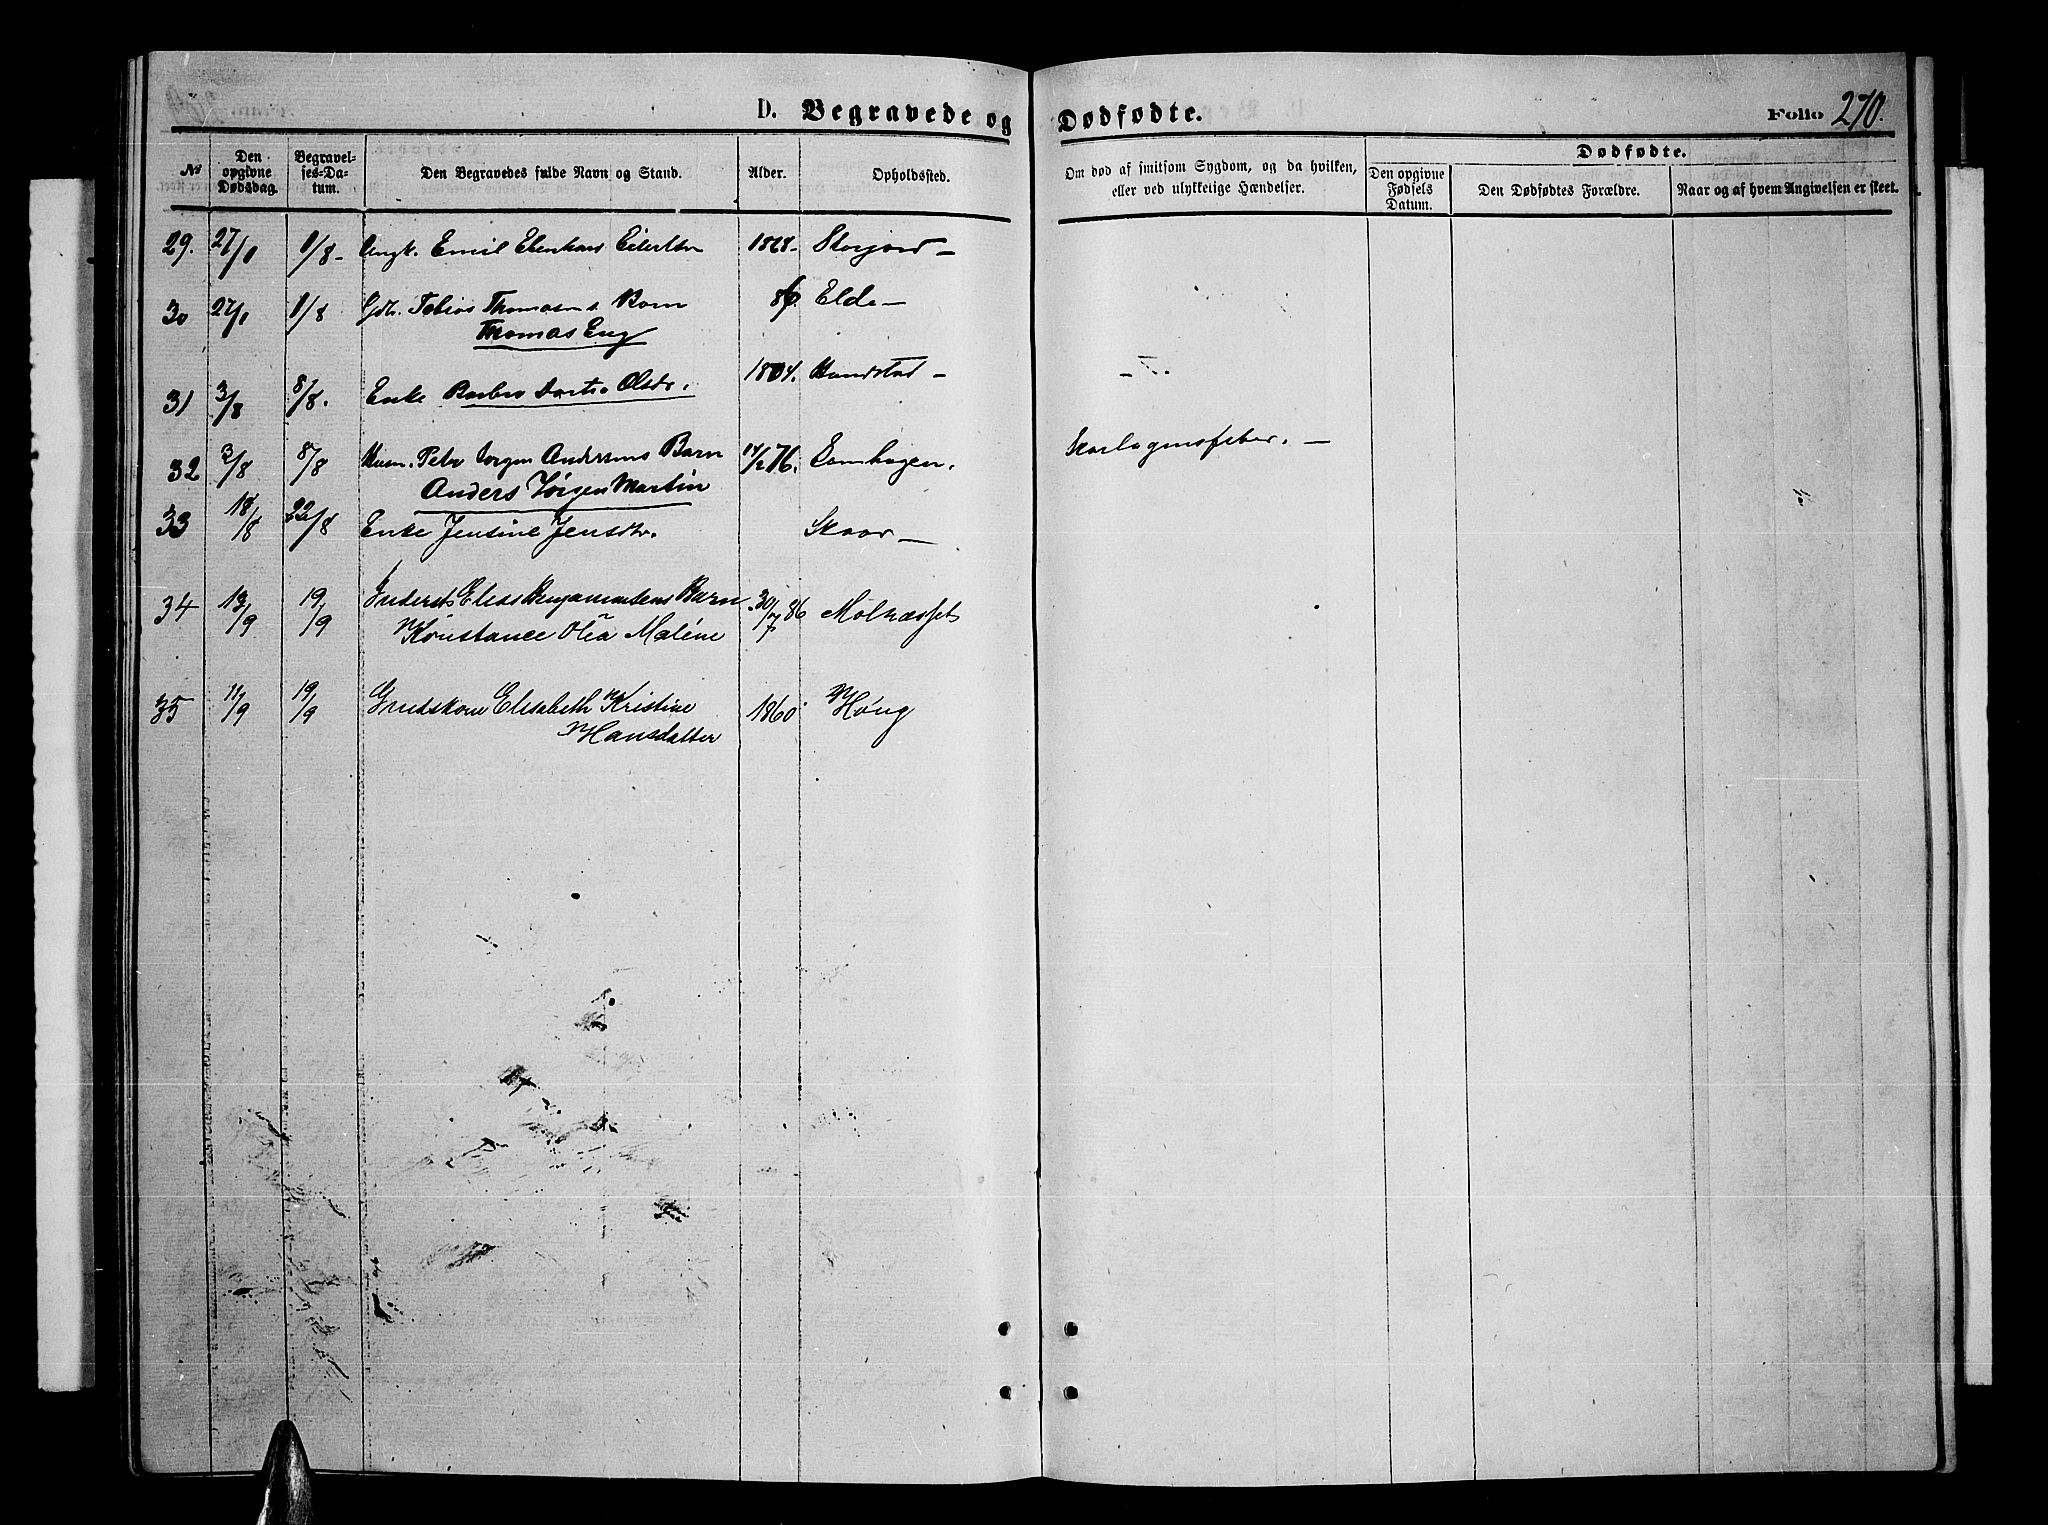 D. Begravede og Dødfødte. Folio 270.
№
Den opgivne Dødsdag.
Begravel-
ses-Da-
tum.
Den Begravedes fulde Navn og Stand.
Alder.
Opholdssted.
Om død af smitsom Sygdom, og da hvilken,
eller ved ulykkelige Hændelser.
Dødfødte.
Den opgivne
Fødsels
Datum.
Den Dødfødtes Forældre.
Naar og af hvem Angivelsen er skeet.
29. 27/ 1/8 - Ungk. Emil Edenhars Eilertsn 1828. Storjord -
30 27/ 1/8 Gdbr. Tobias Thomasens Barn 86. Elde -
Thomas Eng
31 3/8 8/8. Enke Barbro Dortea Olsdr. 1804. Handstad -
32 3/8 8/8 Peder Jørgen Andersens Barn 14/2 76. Lomhagen. Skarlagensfeber. -
Anders Jørgen Martin
33 18/8 22/8 Enke Jensine Jensdtr. Skaar -
34 13/9 19/9 Inderst Elias Benjaminsens Barn 30/7 86 Molnæsset
Konstance Olea Maléne
35 11/9 19/9 Elisabeth Kristine 1860 Haug
Hansdatter